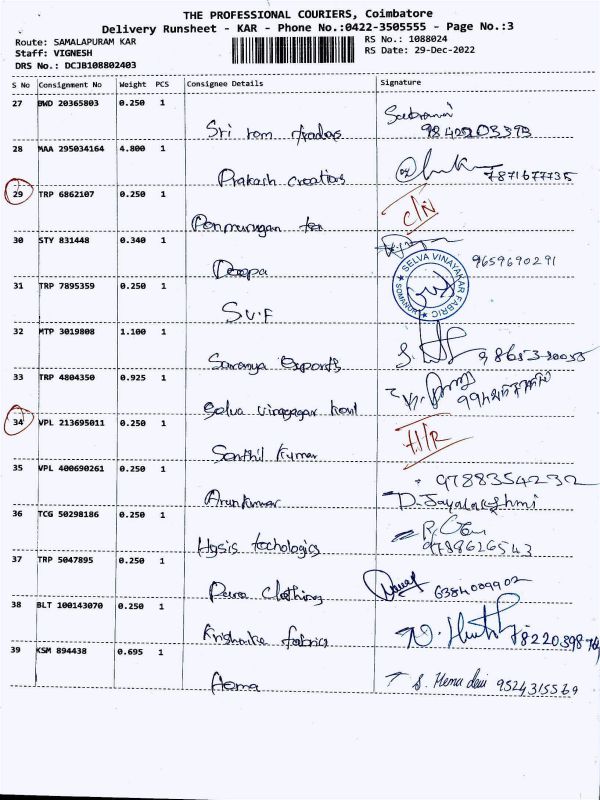 THE PROFESSIONAL COURIERS, Coimbatore
Delivery Runsheet - KAR - Phone No.:0422-3505555 - Page No.:3
Route: SAMALAPURAM KAR
RS No.: 1088024
Staff: VIGNESH
RS Date: 29-Dec-2022
DRS No.: DCJB108802403
S No Consignment No Weight PCS Consignee Details Signature
27 BWD 20365803 0.250 1
28 MAA 295034164 4.800 1
Prakash creations 7871677735
29 TRP 6862107 0.250 1
C/N
Ponmurugan tex
30 STY 831448 0.340 1
Deepa 9659690291
SELVA VINAYAKAR FABRIC
SOMANUR
31 TRP 7895359 0.250 1
S.V.F
32 MTP 3019808 1.100 1
Saranya Exports
33 TRP 4804350 0.925 1
Selva
34 VPL 213695011 0.250 1
H/R
Senthil Kumar
35 VPL 400690261 0.250 1
9788354232
Arunkumar D. Jayalakshmi
36 TCG 50298186 0.250 1
9788626543
37 TRP 5047895 0.250 1
clothing 6384009902
38 BLT 100143070 0.250 1
39 KSM 894438 0.695 1
Hema S. Hema devi 9524315569